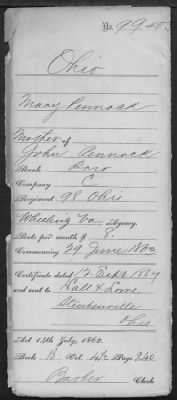 No. 9940
Ohio
Mary Pennock
Mother of
John Pennock
Rank Priv
Company C
Regiment 98 Ohio
Wheeling Va Agency.
Rate per month $ 8.
Commencing 29 June 1863
Certificate dated 12 Sept 1864
and sent to
Steubenville
Ohio
Act 14th July, 1862.
Book B Vol. 4 1/2 Page 240
Barber Clerk